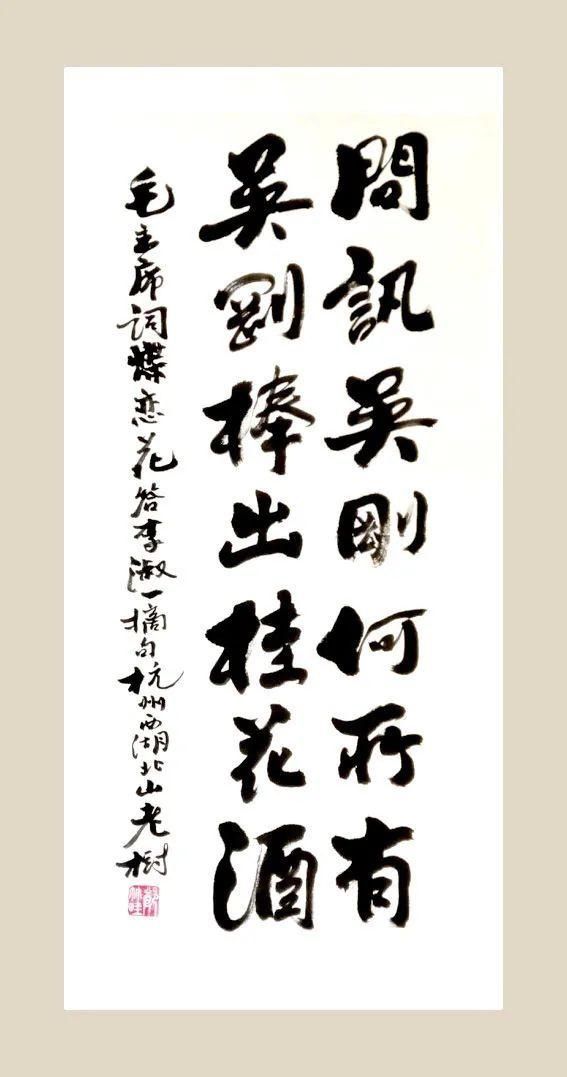 問訊吳剛何所有
吳剛捧出桂花酒
毛主席词蝶恋花答李淑一摘句杭州西湖北山老樹